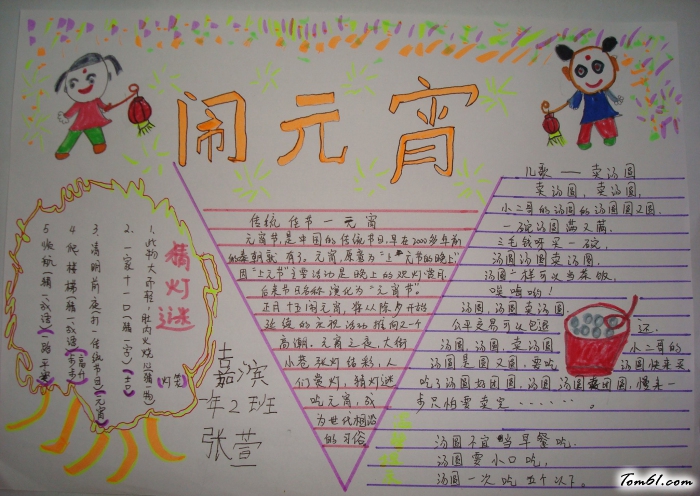 闹元宵
猜灯谜
1.此物大而轻,肚内火烧心(猜一物)(灯笼)
2.一家十一口(猜一字)(吉)
3 清明前夜(打一传统节日)(元宵)
4 爬楼梯(猜一成语)
5 快航(猜一成语)(一路平安)
嘉滨
一年2班
张萱
传统佳节一元宵
元宵节,是中国的传统节日,早在2000多年前
的秦朝就有了。元宵,原意为"上元节的晚上"
因"上元节"主要活动是晚上的观灯赏月,
后来节日名称演化为"元宵节"。
正月十五闹元宵,将从除夕开始
延续的庆祝活动推向又一个
高潮。元宵之夜,大街
小巷张灯结彩,人
们赏灯,猜灯谜
吃元宵,成
为世代相沿
的习俗
儿歌——卖汤圆
卖汤圆,卖汤圆,
小二哥的汤圆的汤圆圆又圆.
一碗汤圆满又满,
三毛钱呀买一碗,
汤圆汤圆卖汤圆,
汤圆一样可以当茶饭,
唉嗨哟!
汤圆,汤圆卖汤圆
公平交易可以包退 还.
汤圆,汤圆,卖汤圆 小二哥的
汤圆是圆又圆,要吃 汤圆快来买
吃了汤圆好团圆,汤圆,汤圆卖团圆,慢来一
步只怕要卖完......。
汤圆不宜当早餐吃.
汤圆要小口吃,
汤圆一次吃五个以下。
Tom61.com